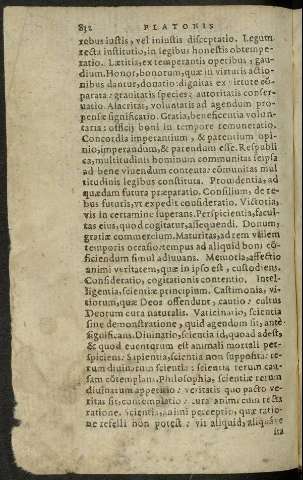 832 PLATONIS
rebus iustis, vel iniustis disceptatio. Legum
recta institutio, in legibus honestis obtempe-
ratio. Lætitia, ex temperantis operibus, gau-
dium. Honor, bonorum, quæ in virtutis actio-
nibus dantur, donatio: dignitas ex virtute cõ-
parata: grauitatis species: autoritatis conser-
uatio. Alacritas, voluntatis ad agendum pro-
pensæ significatio. Gratia, beneficentia volun-
taria: officij boni in tempore remuneratio.
Concordia imperantium, & parentium opi-
nio, imperandum, & parendum esse. Respubli
ca, multitudinis hominum communitas seipsa
ad bene viuendum contenta: cõmunitas mul
titudinis legibus constituta. Prouidentia, ad
quædam futura præparatio. Consilium, de re-
bus futuris, vt expedit consideratio. Victoria,
vis in certamine superans. Perspicientia, facul-
tas eius, quod cogitatur, assequendi. Donum,
gratiæ commercium. Maturitas, ad rem vtilem
temporis occasio: tempus ad aliquid boni cõ-
ficiendum simul adiuuans. Memoria, affectio
animi veritatem, quæ in ipso est, custodiens.
Consideratio, cogitationis contentio. Intel-
ligentia, scientiæ principium. Castimonia, vi-
tiorum, quæ Deos offendunt, cautio: cultus
Deorum cura naturalis. Vaticinatio, scientia
sine demonstratione, quid agendum sit, ante
significans. Diuinatio, scientia id, quod adest,
& quod euenturum est animali mortali per-
spiciens. Sapientia, scientia non supposita: re-
rum diuinarum scientia: scientia rerum cau-
sam cõtemplans. Philosophia, scientiæ rerum
diuinarum appetitio: veritatis quo pacto ve-
ritas sit, contemplatio: cura animi cum recta
ratione. Scientia, animi perceptio, quæ ratio-
ne refelli non potest: vis aliquid, aliquáve
ita